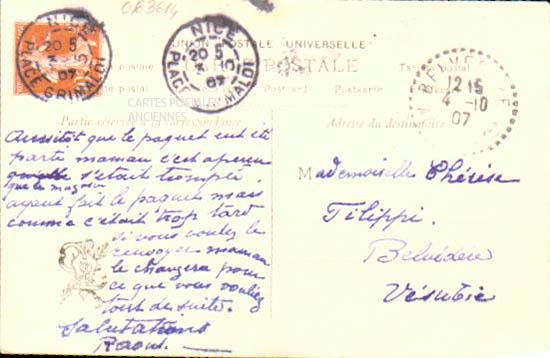 083614
NICE
20 5
3 -10
07
PLACE GRIMALDI
NICE
20 5
3 -10
07
PLACE GRIMALDI
UNION POSTALE UNIVERSELLE
POSTALE
Postkarte
CARTES POSTALES
ANCIENNES
Partie réservée à la correspondance
Adresse du destinataire
BELVEDERE
12 15
4 -10
07
Aussitôt que le paquet eut été
parti maman c'est aperçu
qu'elle s'était trompée
que le magasin
ayant fait le paquet mais
comme c'était trop tard
si vous voulez le
renvoyer maman
le changera pour
ce que vous vouliez
tout de suite.
Salutations
Raoul
Mademoiselle Thérèse
Filippi
Belvédère
Vésubie